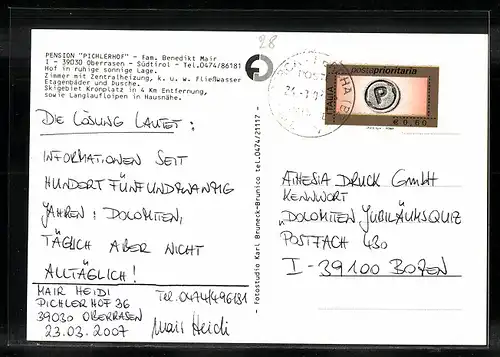 PENSION "PICHLERHOF" - Fam. Benedikt Mair
I - 39030 Oberrasen - Südtirol - Tel.0474/86181
Hof in ruhige sonnige Lage.
Zimmer mit Zentralheizung, k. u. w. Fließwasser
Etagenbäder und Dusche.
Skigebiet Kronplatz in 4 Km Entfernung,
sowie Langlaufloipen in Hausnähe.
28
posteprioritaria
P
ITALIA
€ 0,60
DIE LÖSUNG LAUTET:
INFORMATIONEN SEIT
HUNDERTFÜNFUNDZWANZIG
JAHREN: DOLOMITEN,
TÄGLICH ABER NICHT
ALLTÄGLICH!
MAIR HEIDI
PICHLERHOF 36
39030 OBERRASEN
23.03.2007
Tel. 0474/496181
Mair Heidi
- Fotostudio Karl Bruneck-Brunico tel.0474/21117 -
ATHESIA DRUCK GmbH
KENNWORT
"DOLOMITEN JUBILÄUMSQUIZ
POSTFACH 430
I-39100 BOZEN